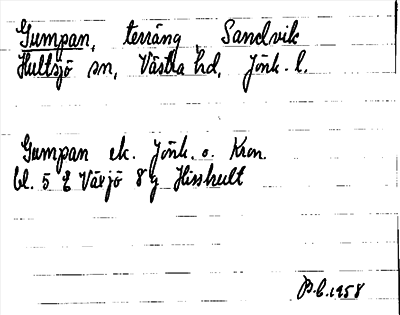 Gumpan, terräng, Sandvik
Hultsjö sn, Västra hd, Jönk. l.
Gumpan ek. Jönk. o. Kron.
bl. 5 E Växjö 8 g Hisshult
P.b. 1958